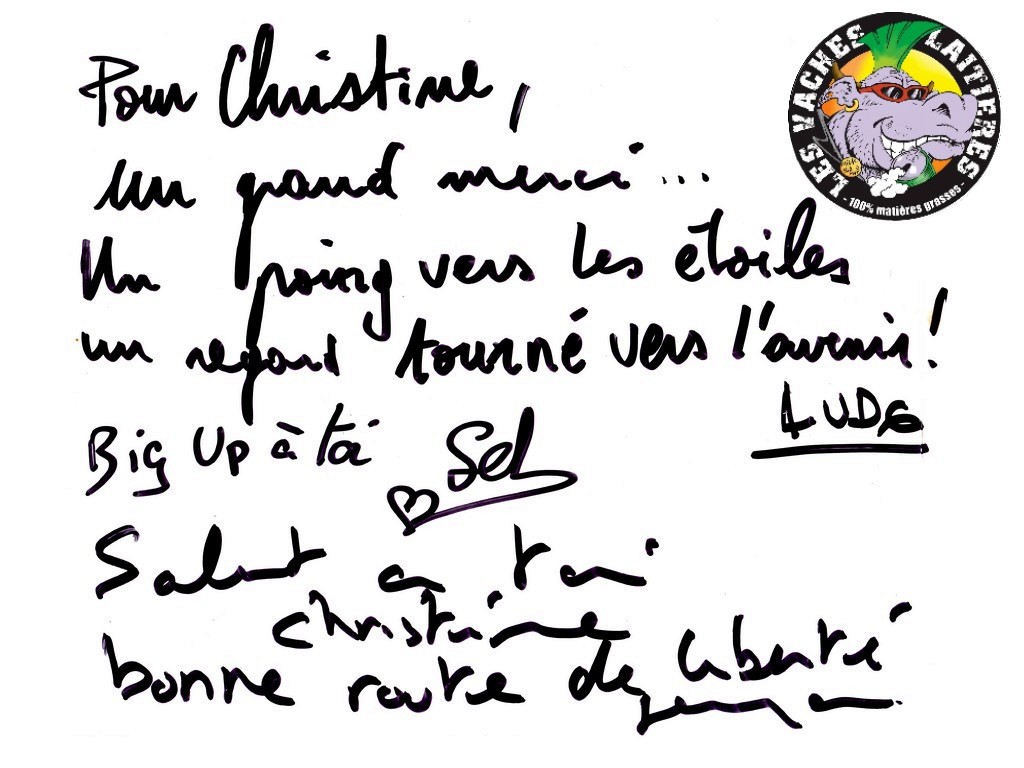 LES VACHES LAITIERES
- 100% matières grasses -
Pour Christine,
un grand merci...
Un poing vers les étoiles
un regard tourné vers l'avenir!
LUDO
Big Up à toi
Seb
Salut a toi
christine
bonne route de liberté